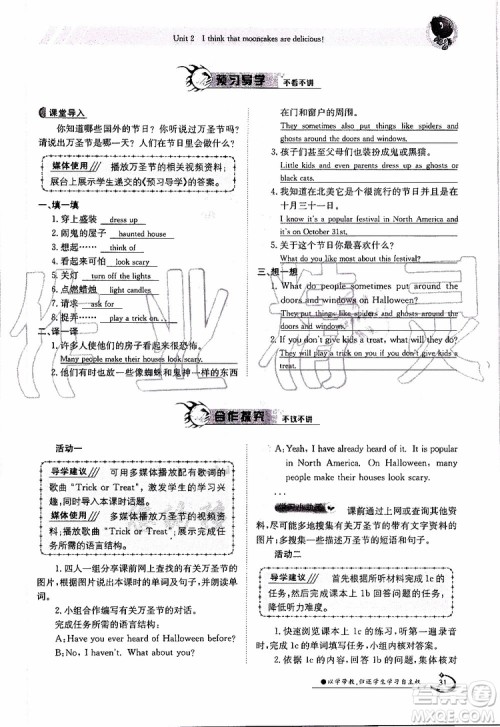 Unit 2 I think that mooncakes are delicious!
预习导学 不看不讲
课堂导入
你知道哪些国外的节日?你听说过万圣节吗?
请说出万圣节是哪一天?人们在万圣节做什么?
媒体使用 播放万圣节的相关视频资料;
展台上展示学生递交的《预习导学》的答案。
一、填一填
1. 穿上盛装 dress up
2. 闹鬼的屋子 haunted house
3. 想起…… think of
4. 看起来可怕 look scary
5. 关灯 turn off the lights
6. 点燃蜡烛 light candles
7. 请求 ask for
8. 捉弄…… play a trick on
二、译一译
1. 许多人使他们的房子看起来可怕。
Many people make their houses look scary.
2. 他们也可能把一些像蜘蛛和鬼神一样的东西
在门和窗户的周围。
They sometimes also put things like spiders
and ghosts around the doors and windows.
3. 孩子们甚至父母们也装扮成鬼或黑猫。
Kids and even parents dress up as ghosts or
black cats.
4. 我知道在北美它是个很流行的节日并且在
十月三十一日。
I know it is a popular festival in North America and
it is on October 31st.
5. 关于这个节日你最喜欢什么?
What do you like most about this festival?
三、想一想
1. What do people sometimes put around the
doors and windows on Halloween?
They put things like spiders and ghosts around the
doors and windows.
2. If you don't give kids a treat, what will they do?
They will play a trick on you if you don't give kids a
treat.
合作探究 不议不讲
活动一
导学建议 可用多媒体播放配有歌词的
歌曲"Trick or Treat",激发学生的学习兴
趣,同时导入本课时话题。
媒体使用 多媒体播放万圣节的相关图
片;播放歌曲"Trick or Treat";展示小组活动
任务所需的语言结构。
1. 四人一组分享课前网上查找的有关万圣节的
图片,根据图片说出本课时的单词及句子,并
朗读单词。
2. 小组合作编写有关万圣节的对话。
完成任务所需的语言结构:
A: Have you ever heard of Halloween before?
B: …
A: Yeah, I have already heard of. It is popular
in North America. On Halloween, many
people make their houses look scary.
…
课前通过上网或查询其他资
料,尽可能多地搜集有关万圣节的带有文字资料的
图片,多搜集一些万圣节的短语和句子。
活动二
导学建议 首先根据所听材料完成 1c 的
任务,然后完成课本上 1b 回答问题的任
务,注意书写答语时人称的转换。
1. 快速浏览课本上 1c 的任务,听第一遍录音
时完成此任务。
2. 根据 1c 的任务提示,听第二遍录音,完成
以学导教,归还学生学习自主权 31